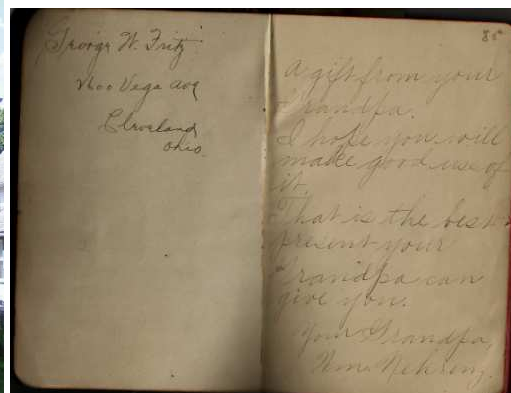 George W. Fritz
Vega Ave
Cleveland
Ohio.
85
A gift from your
Grandpa.
I hope you will
make good use of
it.
That is the best
present your
Grandpa can
give you.
Your Grandpa,
Wm. Nehring.